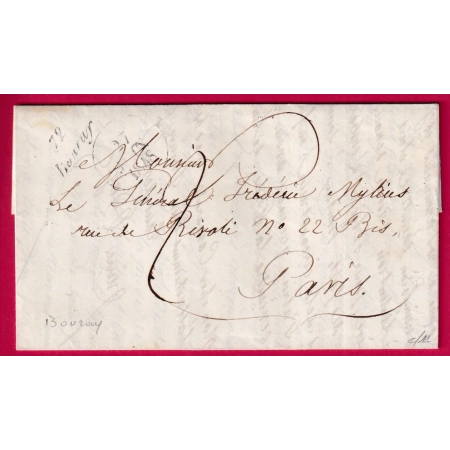 72
Bouray
Monsieur
Le Général Frédéric Mylius
rue de Rivoli No 22 Bis.
Paris.
2
Bouray